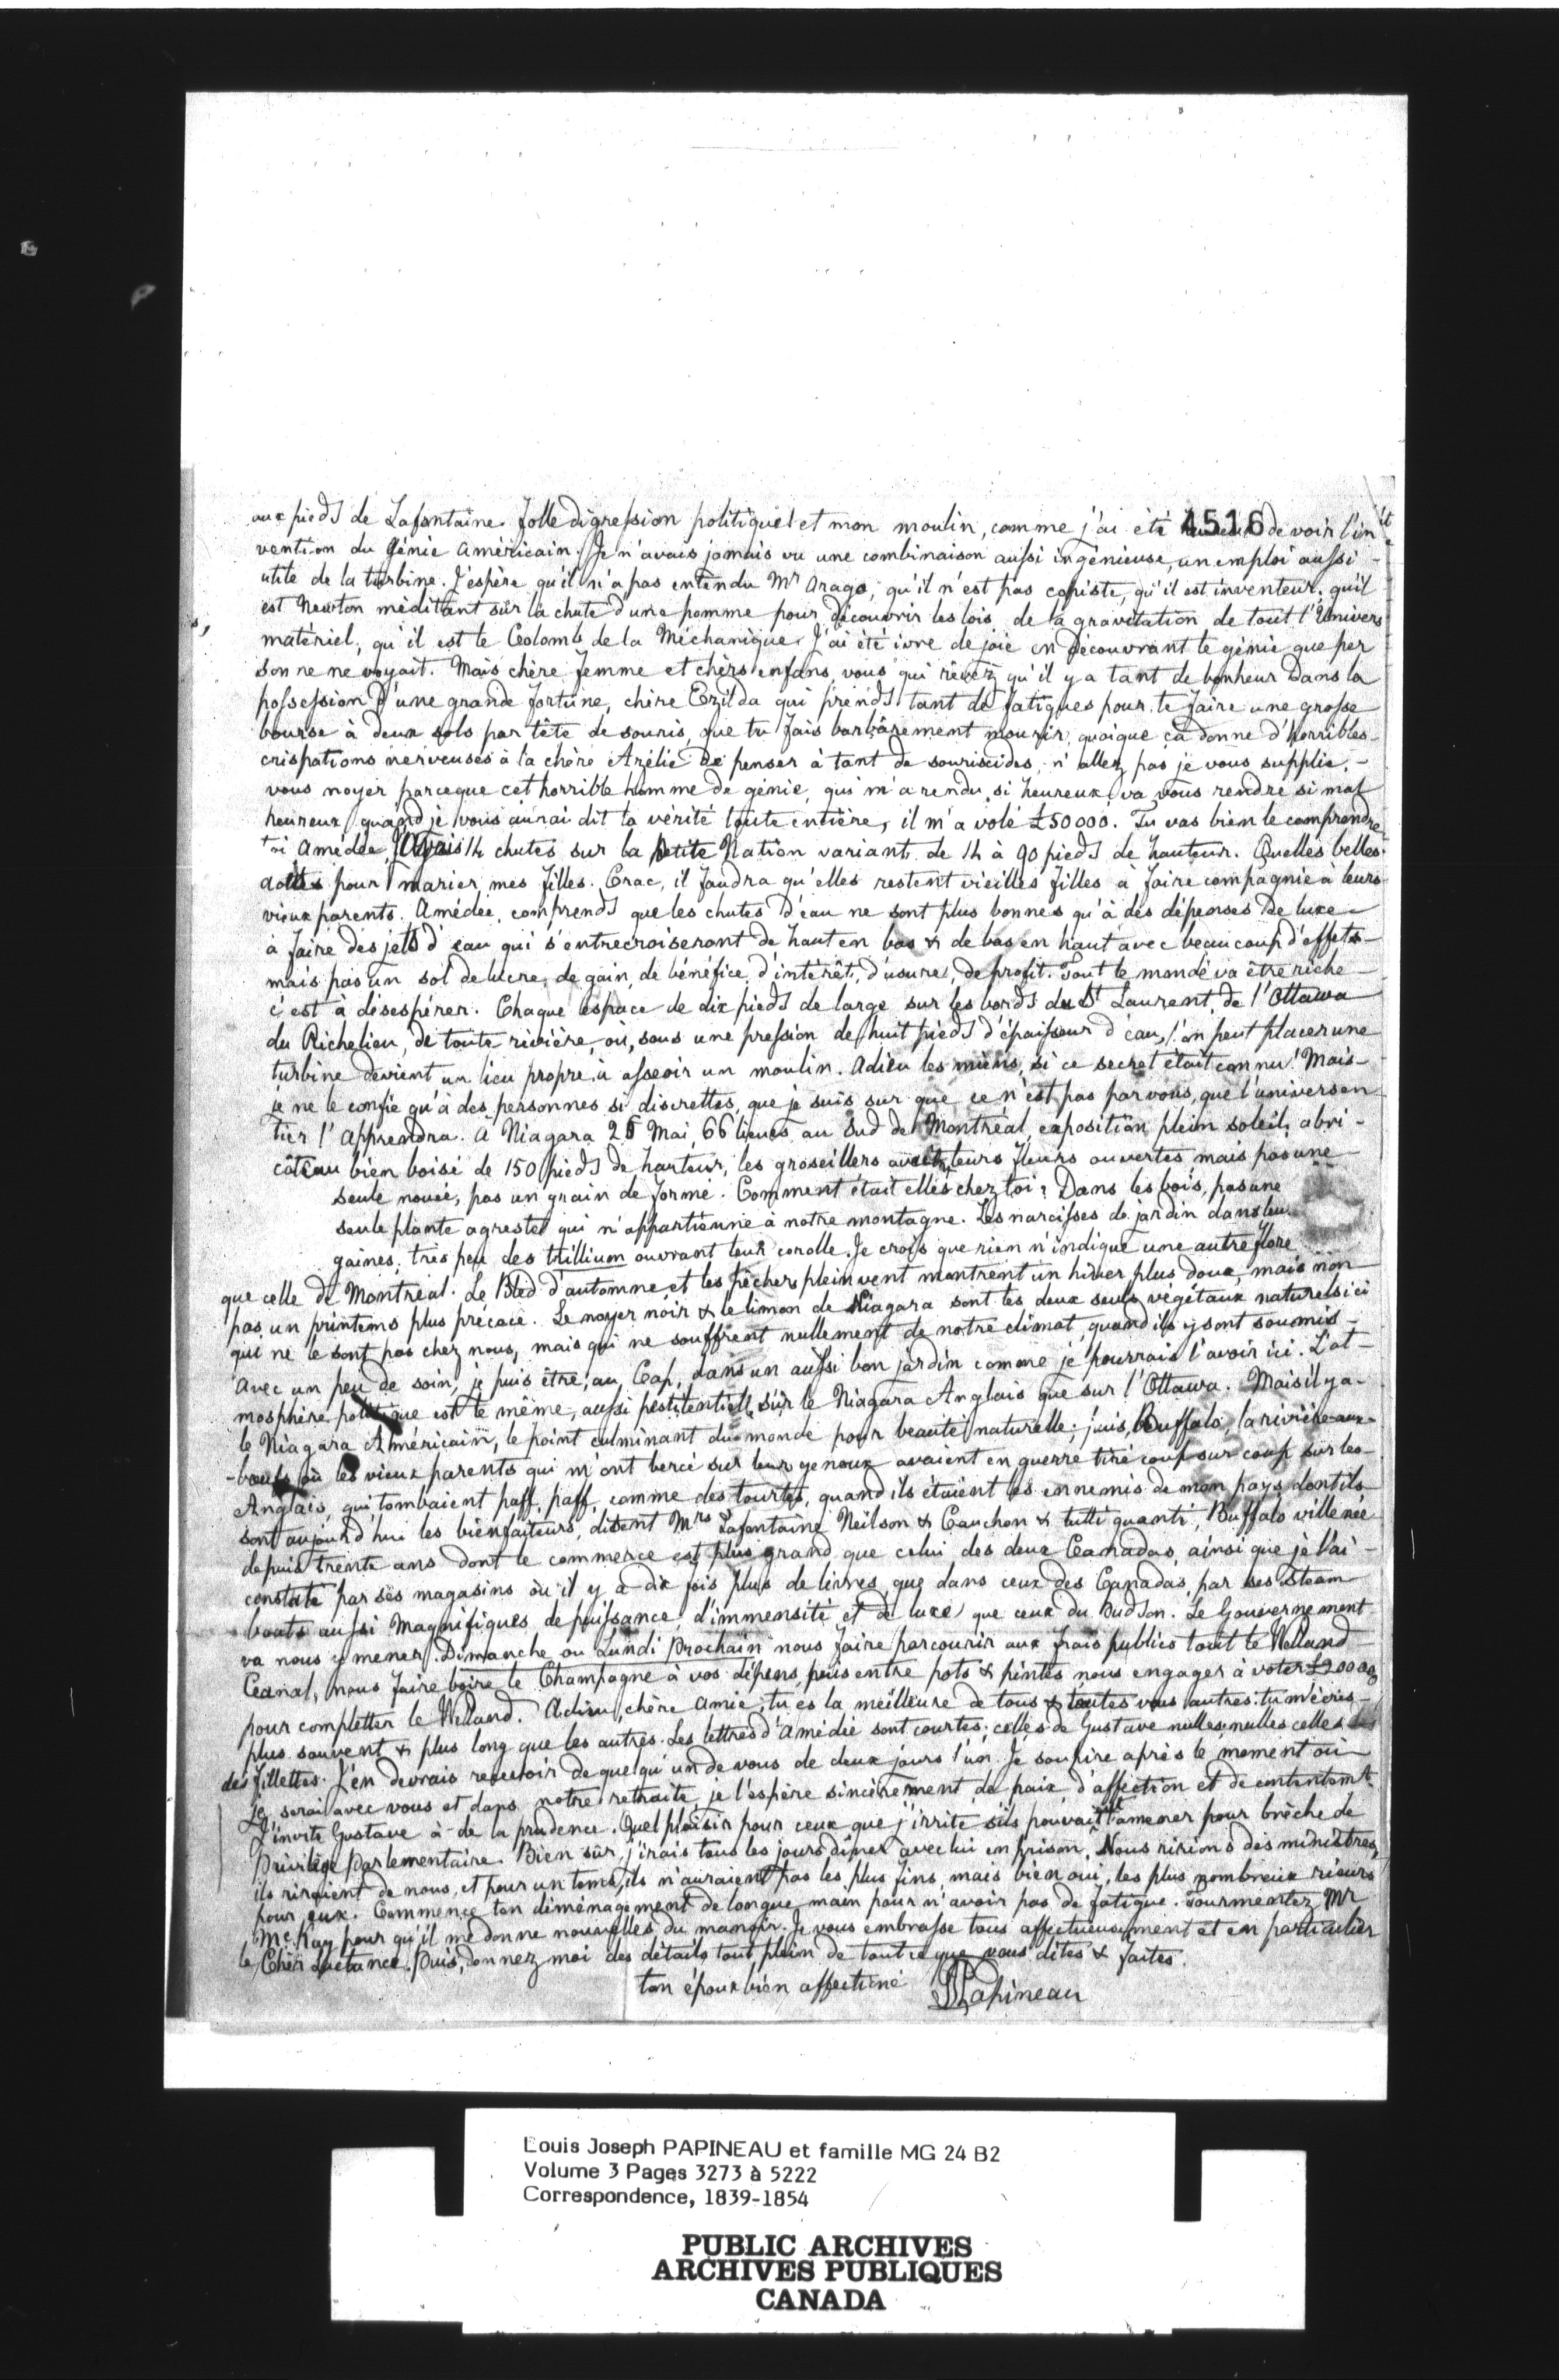 aux pieds de Lafontaine. Folle digression politique! et mon moulin, comme j'ai été de voir l'in
4516
vention du génie américain. Je n'avais jamais vu une combinaison aussi ingénieuse, un emploi aussi
utile de la turbine. J'espère qu'il n'a pas entendu Mr Arago, qu'il n'est pas copiste, qu'il est inventeur, qu'il
est Newton méditant sur la chute d'une pomme pour découvrir les lois de la gravitation de tout l'Univers
matériel, qu'il est le Colomb de la Méchanique. J'ai été ivre de joie en découvrant le génie que per
sonne ne voyait. Mais chère femme et chers enfans, vous qui rêvez qu'il y a tant de bonheur dans la
possession d'une grande fortune, chère Ezilda qui prends tant de fatigues pour te faire une grosse
bourse à deux sols par tête de souris, que tu fais barbârement mourir, quoique ça donne d'horribles
crispations nerveuses à la chère Azélie de penser à tant de souriscides, n'allez pas je vous supplie,
vous noyer parceque cet horrible homme de génie, qui m'a rendu si heureux, va vous rendre si mal
heureux, quand je vous aurai dit la vérité toute entière, il m'a volé £50000. Tu vas bien le comprendre
toi Amédée, J'avais 14 chutes sur la Petite Nation variant de 14 à 90 pieds de hauteur. Quelles belles
dottes pour marier mes filles. Crac, il faudra qu'elles restent vieilles filles à faire compagnie à leurs
vieux parents. Amédée, comprends que les chutes d'eau ne sont plus bonnes qu'à des dépenses de luxe
à faire des jets d'eau qui s'entrecroiseront de haut en bas & de bas en haut avec beaucoup d'effets
mais pas un sol de lucre, de gain, de bénéfice, d'intérêt, d'usure, de profit. Tout le monde va être riche
c'est à désespérer. Chaque espace de dix pieds de large sur les bords du St Laurent, de l'Ottawa
du Richelieu, de toute rivière, où, sous une pression de huit pieds d'épaisseur d'eau, l'on peut placer une
turbine devient un lieu propre à asseoir un moulin. Adieu les miens, si ce secret était connu! Mais
je ne le confie qu'à des personnes si discrettes, que je suis sur que ce n'est pas par vous, que l'univers en
tier l'apprendra. À Niagara 26 Mai, 66 lieues au Sud de Montréal, exposition plein soleil, abri
côteau bien boisé de 150 pieds de hauteur, les groseillers avec leurs fleurs ouvertes, mais pas une
seule nouée, pas un grain de formé. Comment était elles chez toi? Dans les bois, pas une
seule plante agreste qui n'appartienne à notre montagne. Les narcisses de jardin dans leurs
gaines, très peu des trillium ouvrant leur corolle. Je crois que rien n'indique une autre flore
que celle de Montréal. Le Bled d'automne et les pêchers plein vent montrent un hiver plus doux, mais non
pas un printems plus précoce. Le noyer noir & le limon de Niagara sont les deux seuls végétaux naturels ici
qui ne le sont pas chez nous, mais qui ne souffrent nullement de notre climat, quand ils y sont soumis
Avec un peu de soin, je puis être, au Cap, dans un aussi bon jardin comme je pourrais l'avoir ici. L'at
mosphère politique est le même, aussi pestilentiel, sur le Niagara Anglais que sur l'Ottawa. Mais il y a
le Niagara Américain, le point culminant du monde pour beauté naturelle; puis, Buffalo, la rivière aux
-boeufs où les vieux parents qui m'ont bercé sur leur genoux avaient en guerre tiré coup sur coup sur les
Anglais, qui tombaient paff, paff, comme des tourtes, quand ils étaient les ennemis de mon pays dont ils
sont aujourd'hui les bienfaiteurs, disent Mrs Lafontaine Neilson & Cauchon & tutti quanti, Buffalo ville née
depuis trente ans dont le commerce est plus grand que celui des deux Canadas, ainsi que je l'ai
constaté par ses magasins où il y a dix fois plus de livres, que dans ceux des Canadas, par ses Steam
boats aussi magnifiques de puissance, d'immensité et de luxe que ceux du Hudson. Le Gouvernement
va nous y mener. Dimanche ou Lundi prochain nous faire parcourir aux frais publics tout le Welland
Canal, nous faire boire le Champagne à vos dépens, puis entre pots & pintes, nous engager à voter
pour completter le Welland. Adieu, chère Amie; tu es la meilleure de tous & toutes vous autres: tu m'écris
plus souvent & plus long que les autres. Les lettres d'Amédée sont courtes; celles de Gustave nulles; nulles celles
des fillettes. J'en devrais recevoir de quelqu'un de vous de deux jours l'un. Je soupire après le moment où
je serai avec vous et dans notre retraite, je l'espère sincèrement de paix, d'affection et de contentemt.
J'invite Gustave à de la prudence. Quel plaisir pour ceux que j'irrite s'ils pouvait l'amener pour brèche de
Privilège Parlementaire. Bien sûr, j'irais tous les jours dîner avec lui en prison. Nous ririons des ministres,
ils riraient de nous, et pour un tems, ils n'auraient pas les plus fins, mais bien oui, les plus nombreux rieurs
pour eux. Commence ton déménagement de longue main pour n'avoir pas de fatigue. Tourmentez Mr
McKay pour qu'il me donne nouvelles du manoir. Je vous embrasse tous affectueusement et en particulier
le Cher Lactance. Puis, donnez moi des détails tout plein de tout ce que vous dites & faites.
ton époux bien affectioné
LJPapineau
Louis Joseph PAPINEAU et famille MG 24 B2
Volume 3 Pages 3273 à 5222
Correspondence, 1839-1854
PUBLIC ARCHIVES
ARCHIVES PUBLIQUES
CANADA